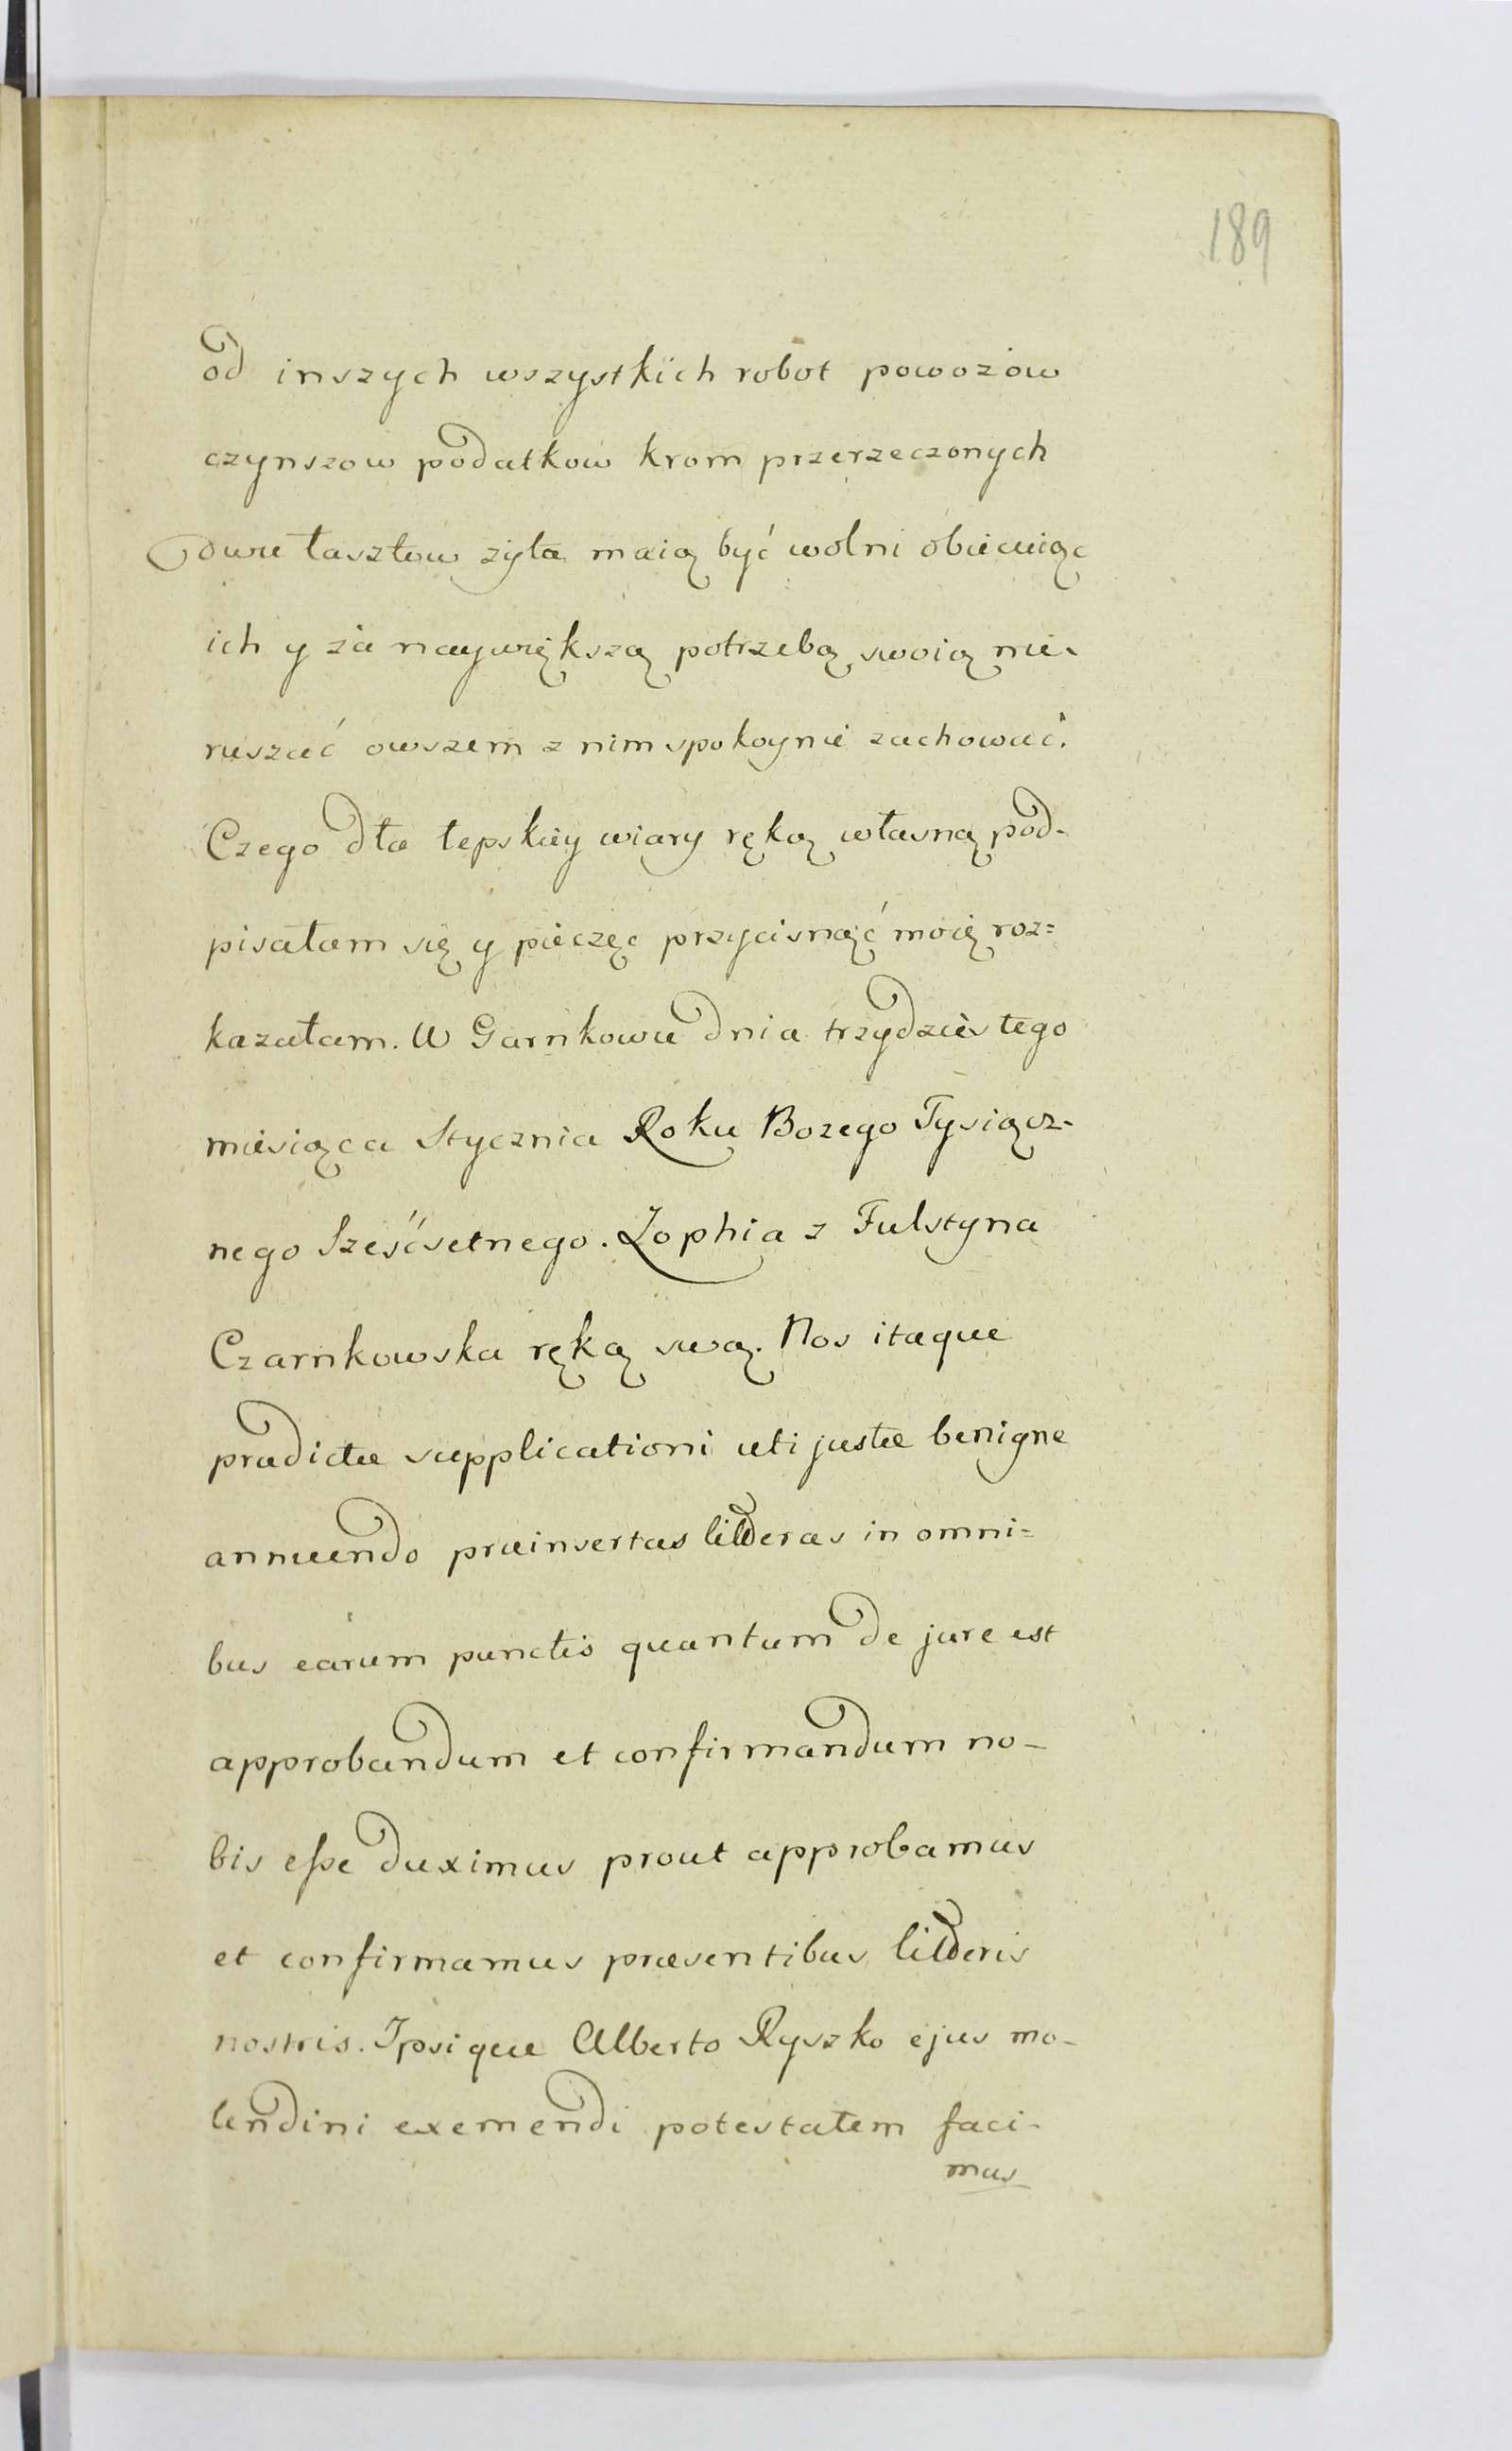 189
od inszych wszystkich robot powozow
czynszow podatkow krom przerzeczonych
dwu łasztow zyta maią być wolni obiecuiąc
ich y za naywiększą potrzebą swoią nie-
ruszać owszem z nim spokoynie zachować.
Czego dla lepskiey wiary ręką własną pod-
pisałam się y pieczęc przycisnąć moię roz=
kazałam. W Garnkowie dnia trzydziestego
miesiąca Stycznia Roku Bozego Tysiącz-
nego Sześćsetnego. Zophia z Fulstyna
Czarnkowska ręką swą. Nos itaque
prædictæ supplicationi uti justæ benigne
annuendo præinsertas litteras in omni=
bus earum punctis quantum de jure est
approbandum et confirmandum no-
bis eſse duximus prout approbamus
et confirmamus præsentibus litteris
nostris. Ipsique Alberto Ryszko ejus mo-
lendini exemendi potestatem faci-
mus